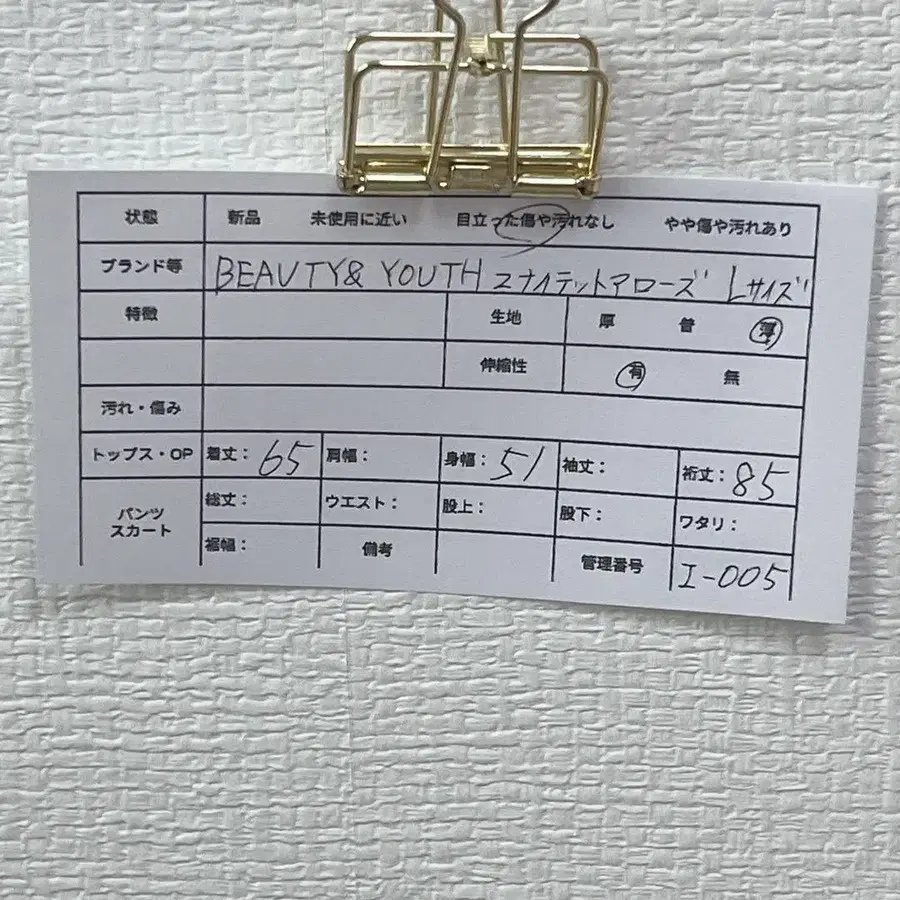 状態 新品 未使用に近い 目立った傷や汚れなし やや傷や汚れあり
ブランド等 BEAUTY& YOUTH ユナイテットアローズ Lサイズ
特徴 生地 厚 普 薄
伸縮性 有 無
汚れ・傷み
トップス・OP 着丈: 65 肩幅: 身幅: 51 袖丈: 裄丈: 85
パンツ スカート 総丈: ウエスト: 股上: 股下: ワタリ:
裾幅: 備考 管理番号 I-005